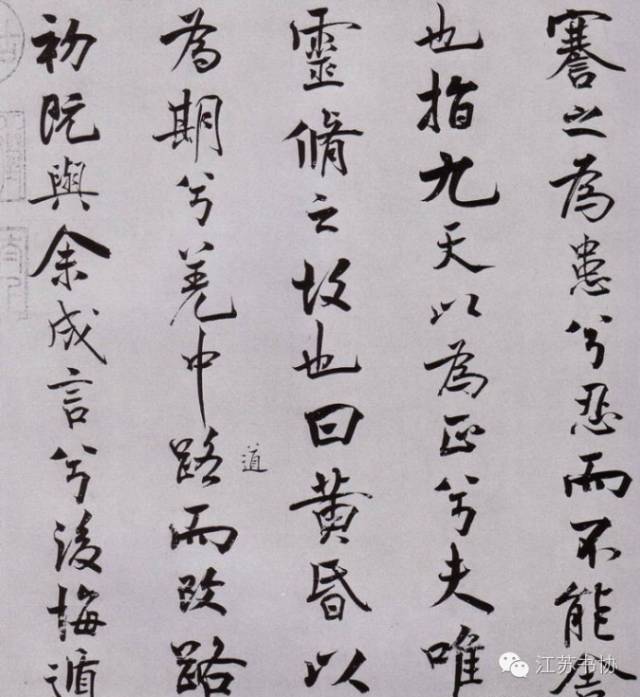 謇之為患兮忍而不能舍
也指九天以為正兮夫唯
靈脩之故也曰黃昏以
為期兮羌中路而改路
道
初既與余成言兮後悔遁
江苏书协